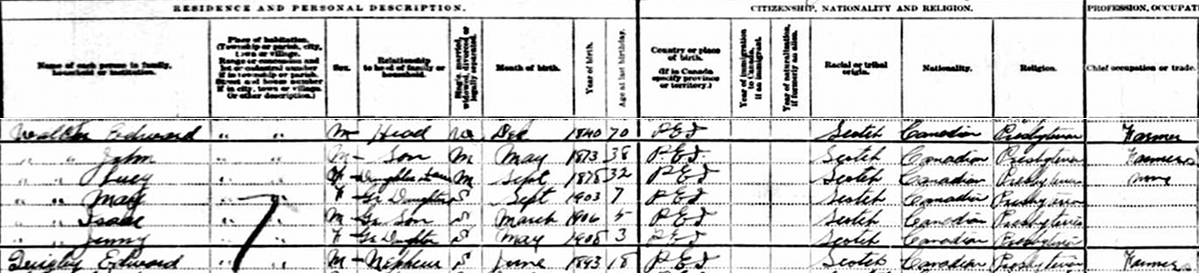 RESIDENCE AND PERSONAL DESCRIPTION. CITIZENSHIP, NATIONALITY AND RELIGION. PROFESSION, OCCUPAT
Name of each person in family, household or institution.
Place of habitation. (Township or parish, city, town or village. Range or concession and lot or cadastral number if in township or parish. Street and house number if in city, town or village. Or other description.)
Sex.
Relationship to head of family or household.
Single, married, widowed, divorced or legally separated.
Month of birth.
Year of birth.
Age at last birthday.
Country or place of birth. (If in Canada specify province or territory.)
Year of immigration to Canada, if an immigrant.
Year of naturalization, if formerly an alien.
Racial or tribal origin.
Nationality.
Religion.
Chief occupation or trade.
Edward " " M Head Dec 1840 70 P E I Scotch Canadian Presbyterian Farmer
" " John " " M Son M May 1873 38 P E I Scotch Canadian Presbyterian Farmer
" " Lucy " " Daughter Law M Sept 1878 32 P E I Scotch Canadian Presbyterian none
" " May " " F Gr Daughter S Sept 1903 7 P E I Scotch Canadian Presbyterian
" " Isaac " " M Gr Son S March 1906 5 P E I Scotch Canadian Presbyterian
" " Jenny " " F Gr Daughter S May 1908 3 P E I Scotch Canadian Presbyterian
Quigley Edward " " M Nephew S June 1893 18 P E I Scotch Canadian Presbyterian Farmer